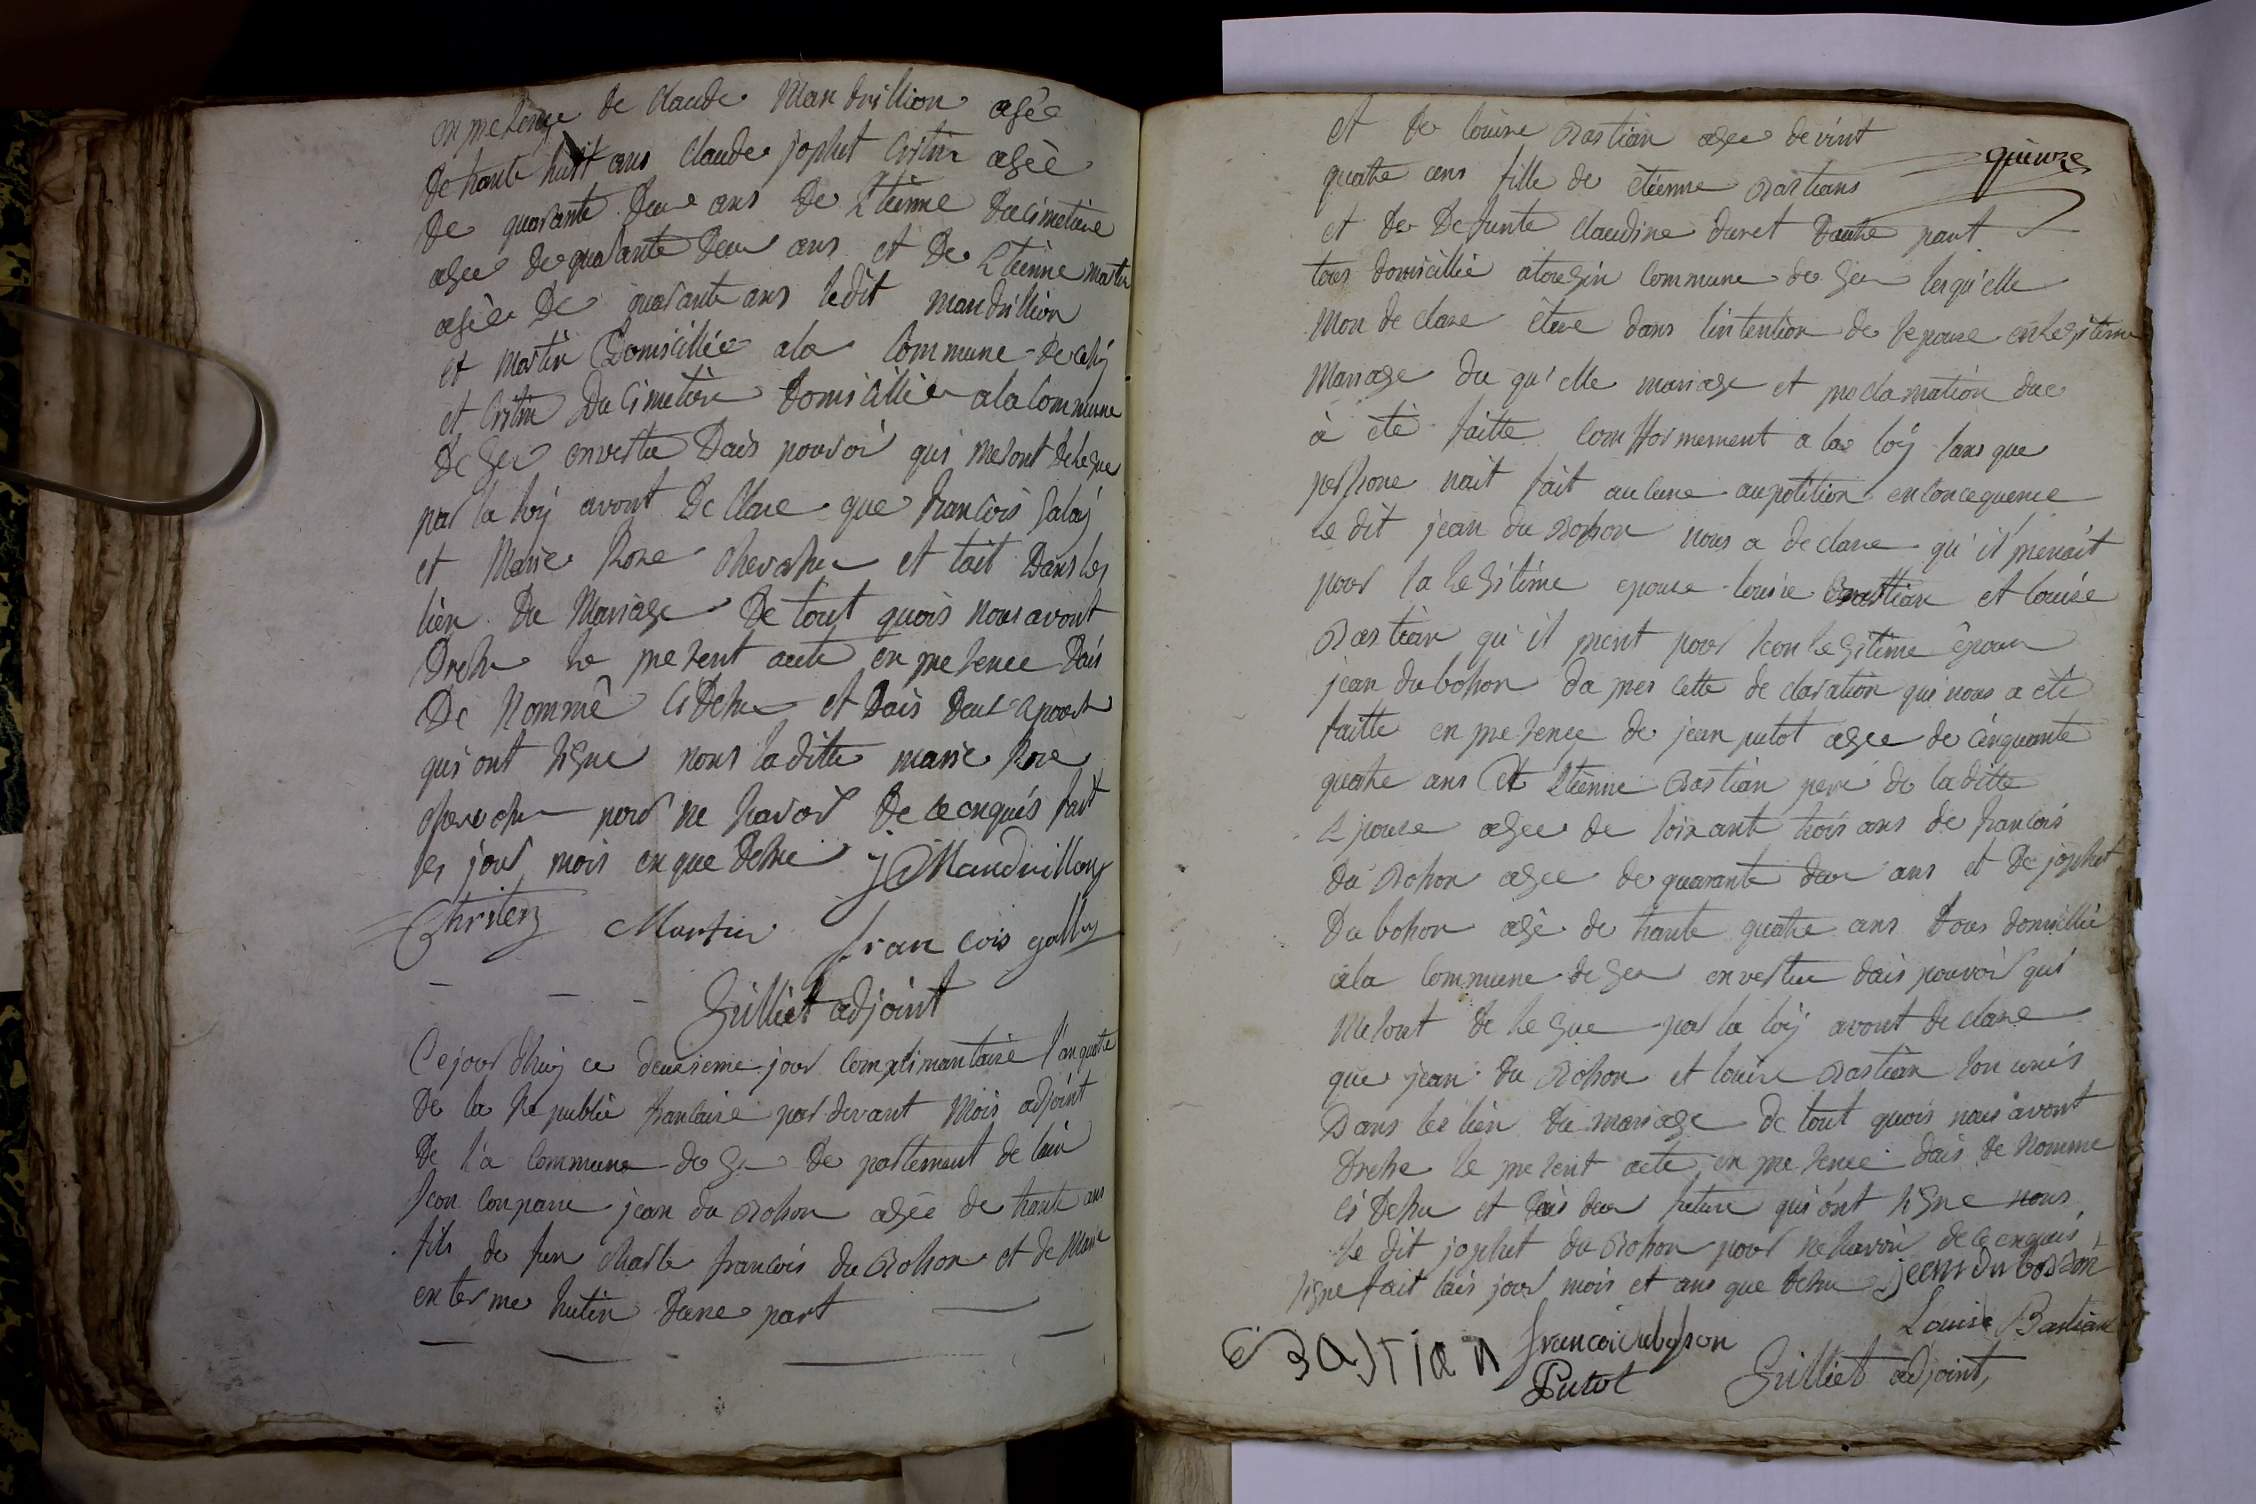 en presence de Claude Mandrillion agée
de trante huit ans Claude jophet Cristin agée
de quarante deu ans de Etienne ducimetiere
agee de quarante deu ans et de Etienne martin
agée de quarante ans ledit mandrillion
et martin Domicilliée a la Commune de
et Cristin Ducimetiere domicilliée a la Commune
de Gex envertu dais pouvoir qui me sont delegue
par la loy avont Declare que francois Galay
et Marie Rose et tait dans les
lien du Mariage de tout quois nous avont
Dresse le present acte en presence dais
De Nommé ci Desu et dais deux epoux
qui ont signe nons laditte marie Rose
pour ne savoir de ce enquis fait
les jour mois en que desue J Mandrillion
Christin Martin
francois gallay
Gilliet adjoint
Ce jour dhuy ce deuxieme jour complimantaire l'an quatre
de la Republie francaise par devant Mois adjoint
De la Commune de Gex De partement de lain
son conpare jean du Boson agée de trante ans
fils de feu Charle francois du Boson et de Marie
hutin dune part
quinze
et de louise Bastian agee de vint
quatre ans fille de étienne Bastians
et de Defunte Claudine duret dautre part
tous domicillié a tougin Commune de Gex lesqu'elle
Mon declare être dans lintention de se pouse en legitime
Mariage du qu'elle mariage et proclamation due
à été faitte Comfformement a la loy sans que
persone nait fait aucune aupotition en concequence
le dit jean du Boson nous a declare qu'il prenait
pour sa legitime epouse louise Bastian et louise
Bastian qu'il prent pour son legitime époux
jean duboson dapres cette declaration qui nous a été
faitte en presence de jean putot agee de cinquante
quatre ans et Etienne Bastian pere de la ditte
Epouse agee de soixant trois ans de francois
du Boson agee de quarante deux ans et de jophet
Duboson agé de trante quatre ans Tous domicillié
a la Commune de Gex en vertu dais pouvoir qui
me sont delegue par la loy avont declare
que jean du Boson et louise Bastian son unis
Dans les lien du mariage de tout quois nous avont
Dresse le present acte en presence dais de Nomme
ci Desu et dais deu future qui ont signe nous
le dit jophet du Boson pour ne savoir de ce enquis
signe fait lais jour mois et ans que desu jean duboson
Louise Bastian
E Bastian francoi duboson
Putot Gilliet adjoint